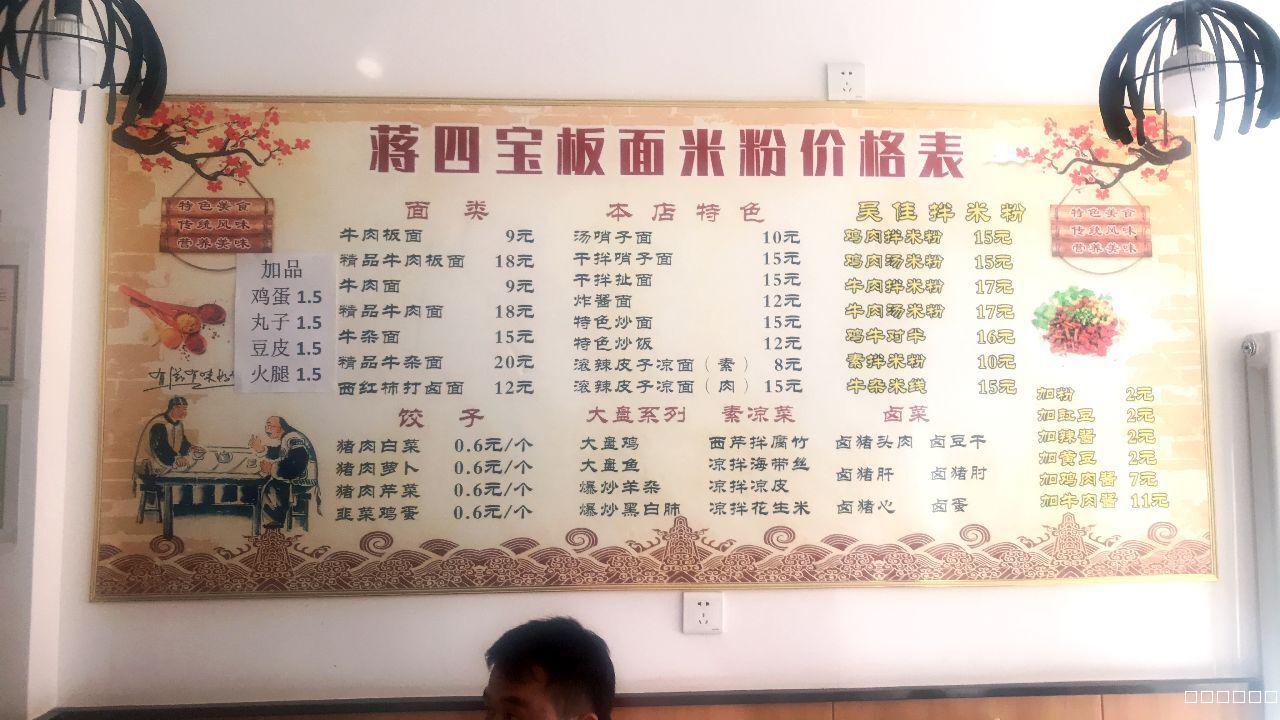 蒋四宝板面米粉价格表
特色美食
传统风味
营养美味
特色美食
传统风味
营养美味
加品
鸡蛋 1.5
丸子 1.5
豆皮 1.5
火腿 1.5
面类
牛肉板面 9元
精品牛肉板面 18元
牛肉面 9元
精品牛肉面 18元
牛杂面 15元
精品牛杂面 20元
西红柿打卤面 12元
本店特色
汤哨子面 10元
干拌哨子面 15元
干拌扯面 15元
炸酱面 12元
特色炒面 15元
特色炒饭 12元
滚辣皮子凉面（素） 8元
滚辣皮子凉面（肉） 15元
吴佳拌米粉
鸡肉拌米粉 15元
鸡肉汤米粉 15元
牛肉拌米粉 17元
牛肉汤米粉 17元
鸡牛对半 16元
素拌米粉 10元
牛杂米线 15元
饺子
猪肉白菜 0.6元/个
猪肉萝卜 0.6元/个
猪肉芹菜 0.6元/个
韭菜鸡蛋 0.6元/个
大盘系列
大盘鸡
大盘鱼
爆炒羊杂
爆炒黑白肺
素凉菜
西芹拌腐竹
凉拌海带丝
凉拌凉皮
凉拌花生米
卤菜
卤猪头肉 卤豆干
卤猪肝 卤猪肘
卤猪心 卤蛋
加粉 2元
加豇豆 2元
加辣酱 2元
加黄豆 2元
加鸡肉酱 7元
加牛肉酱 11元